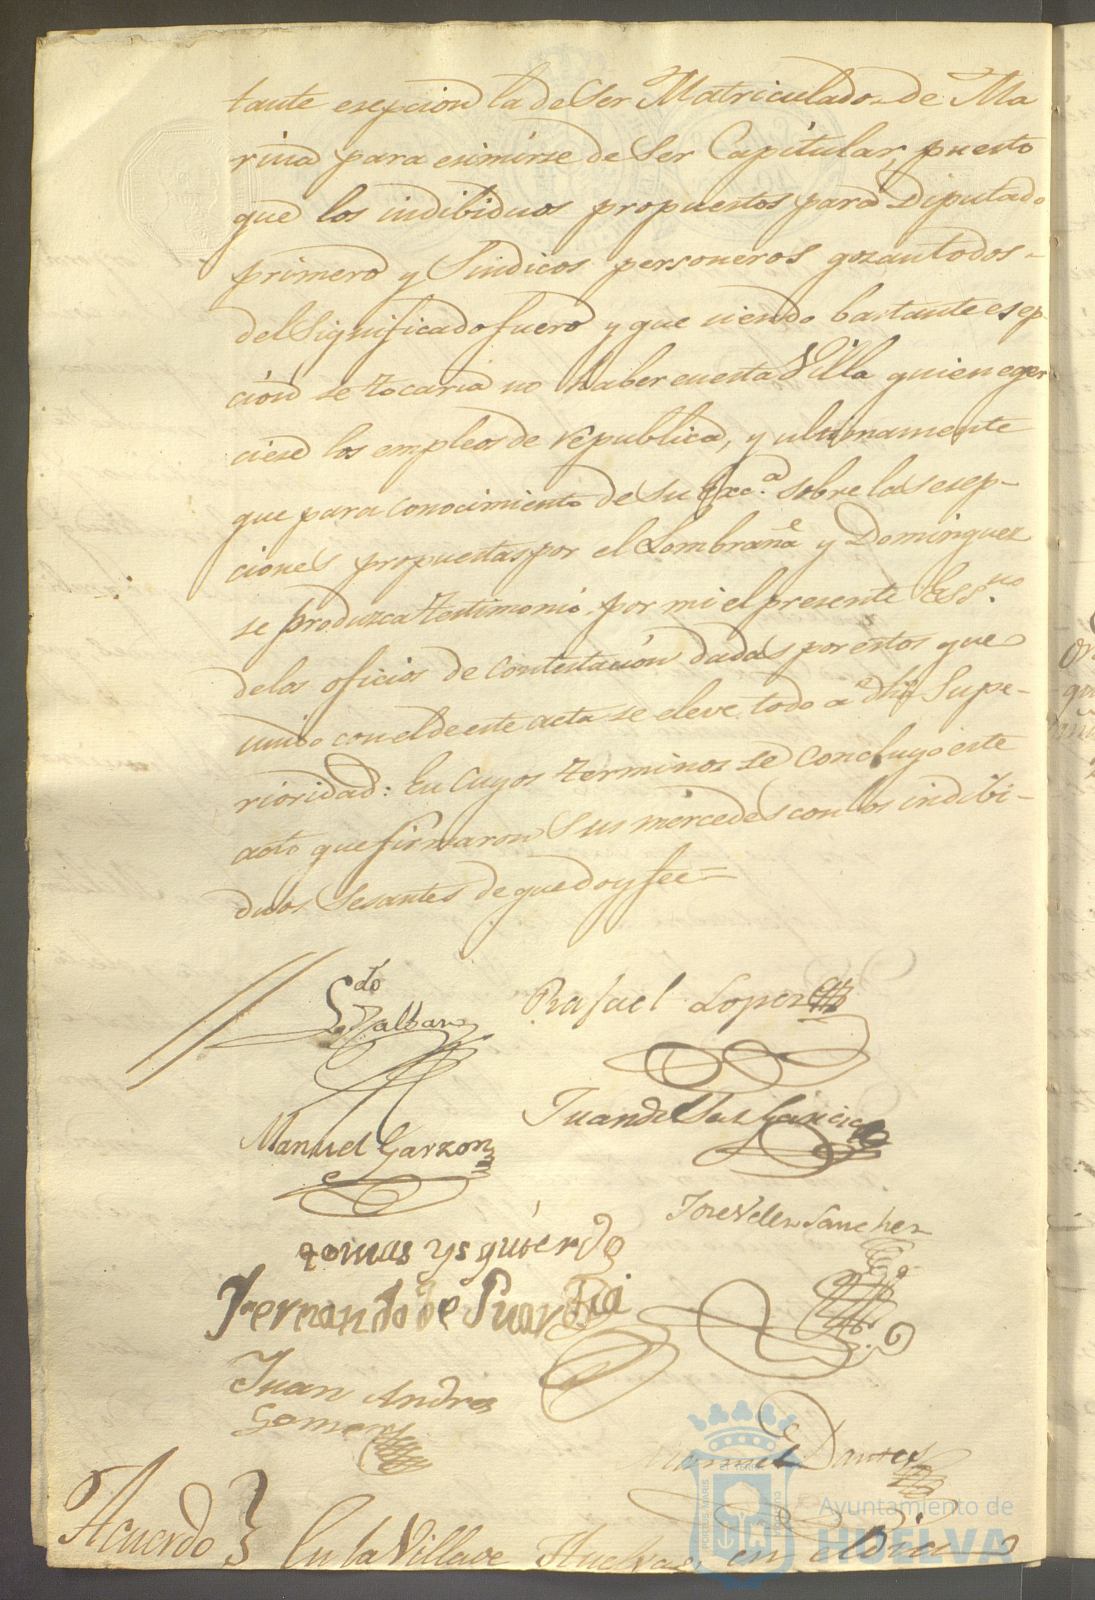 tante esepcion la de Ser Matriculado de Ma
rina para esimirse de Ser Capitular, puesto
que los indibiduos propuestos para Diputado
primero y Sindicos personeros gozan todos-
del Significado fuero y que siendo bastante esep
ción se tocaria no haber en esta Villa quien eger
ciese los empleos de republica, y ultimamente
que para conocimiento de Su Exc.ª sobre las esep-
ciones propuestas por el Lombraña y Dominguez
se produzca testimonio por mi el presente Ess.no
de los oficios de contestación dadas por estos que
unido con el de este acta se eleve todo a dha Supe-
rioridad: En Cuyos terminos se concluyo este
acto que firmaron Sus mercedes con los indibi-
duos Sesantes de que doy fee=
Rafael Lopez
Manuel Garzon
Juan de Garcia
Jose Velez Sanchez
tomas ysquierdo
Fernando de
Juan Andres
Gomez
Manuel
Acuerdo } En la Villa de Huelva, en el Dia
Ayuntamiento de
HUELVA